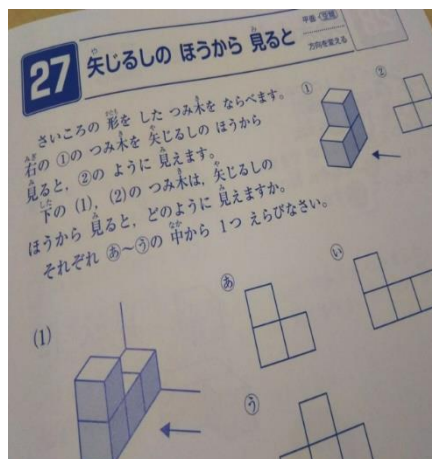 27 矢じるしの ほうから 見ると
平面・空間
方向を変える
さいころの 形を した つみ木を ならべます。
右の ①の つみ木を 矢じるしの ほうから
見ると，②の ように 見えます。
下の (1)，(2)の つみ木は，矢じるしの
ほうから 見ると，どのように 見えますか。
それぞれ あ～うの 中から 1つ えらびなさい。
①
②
(1)
あ
い
う